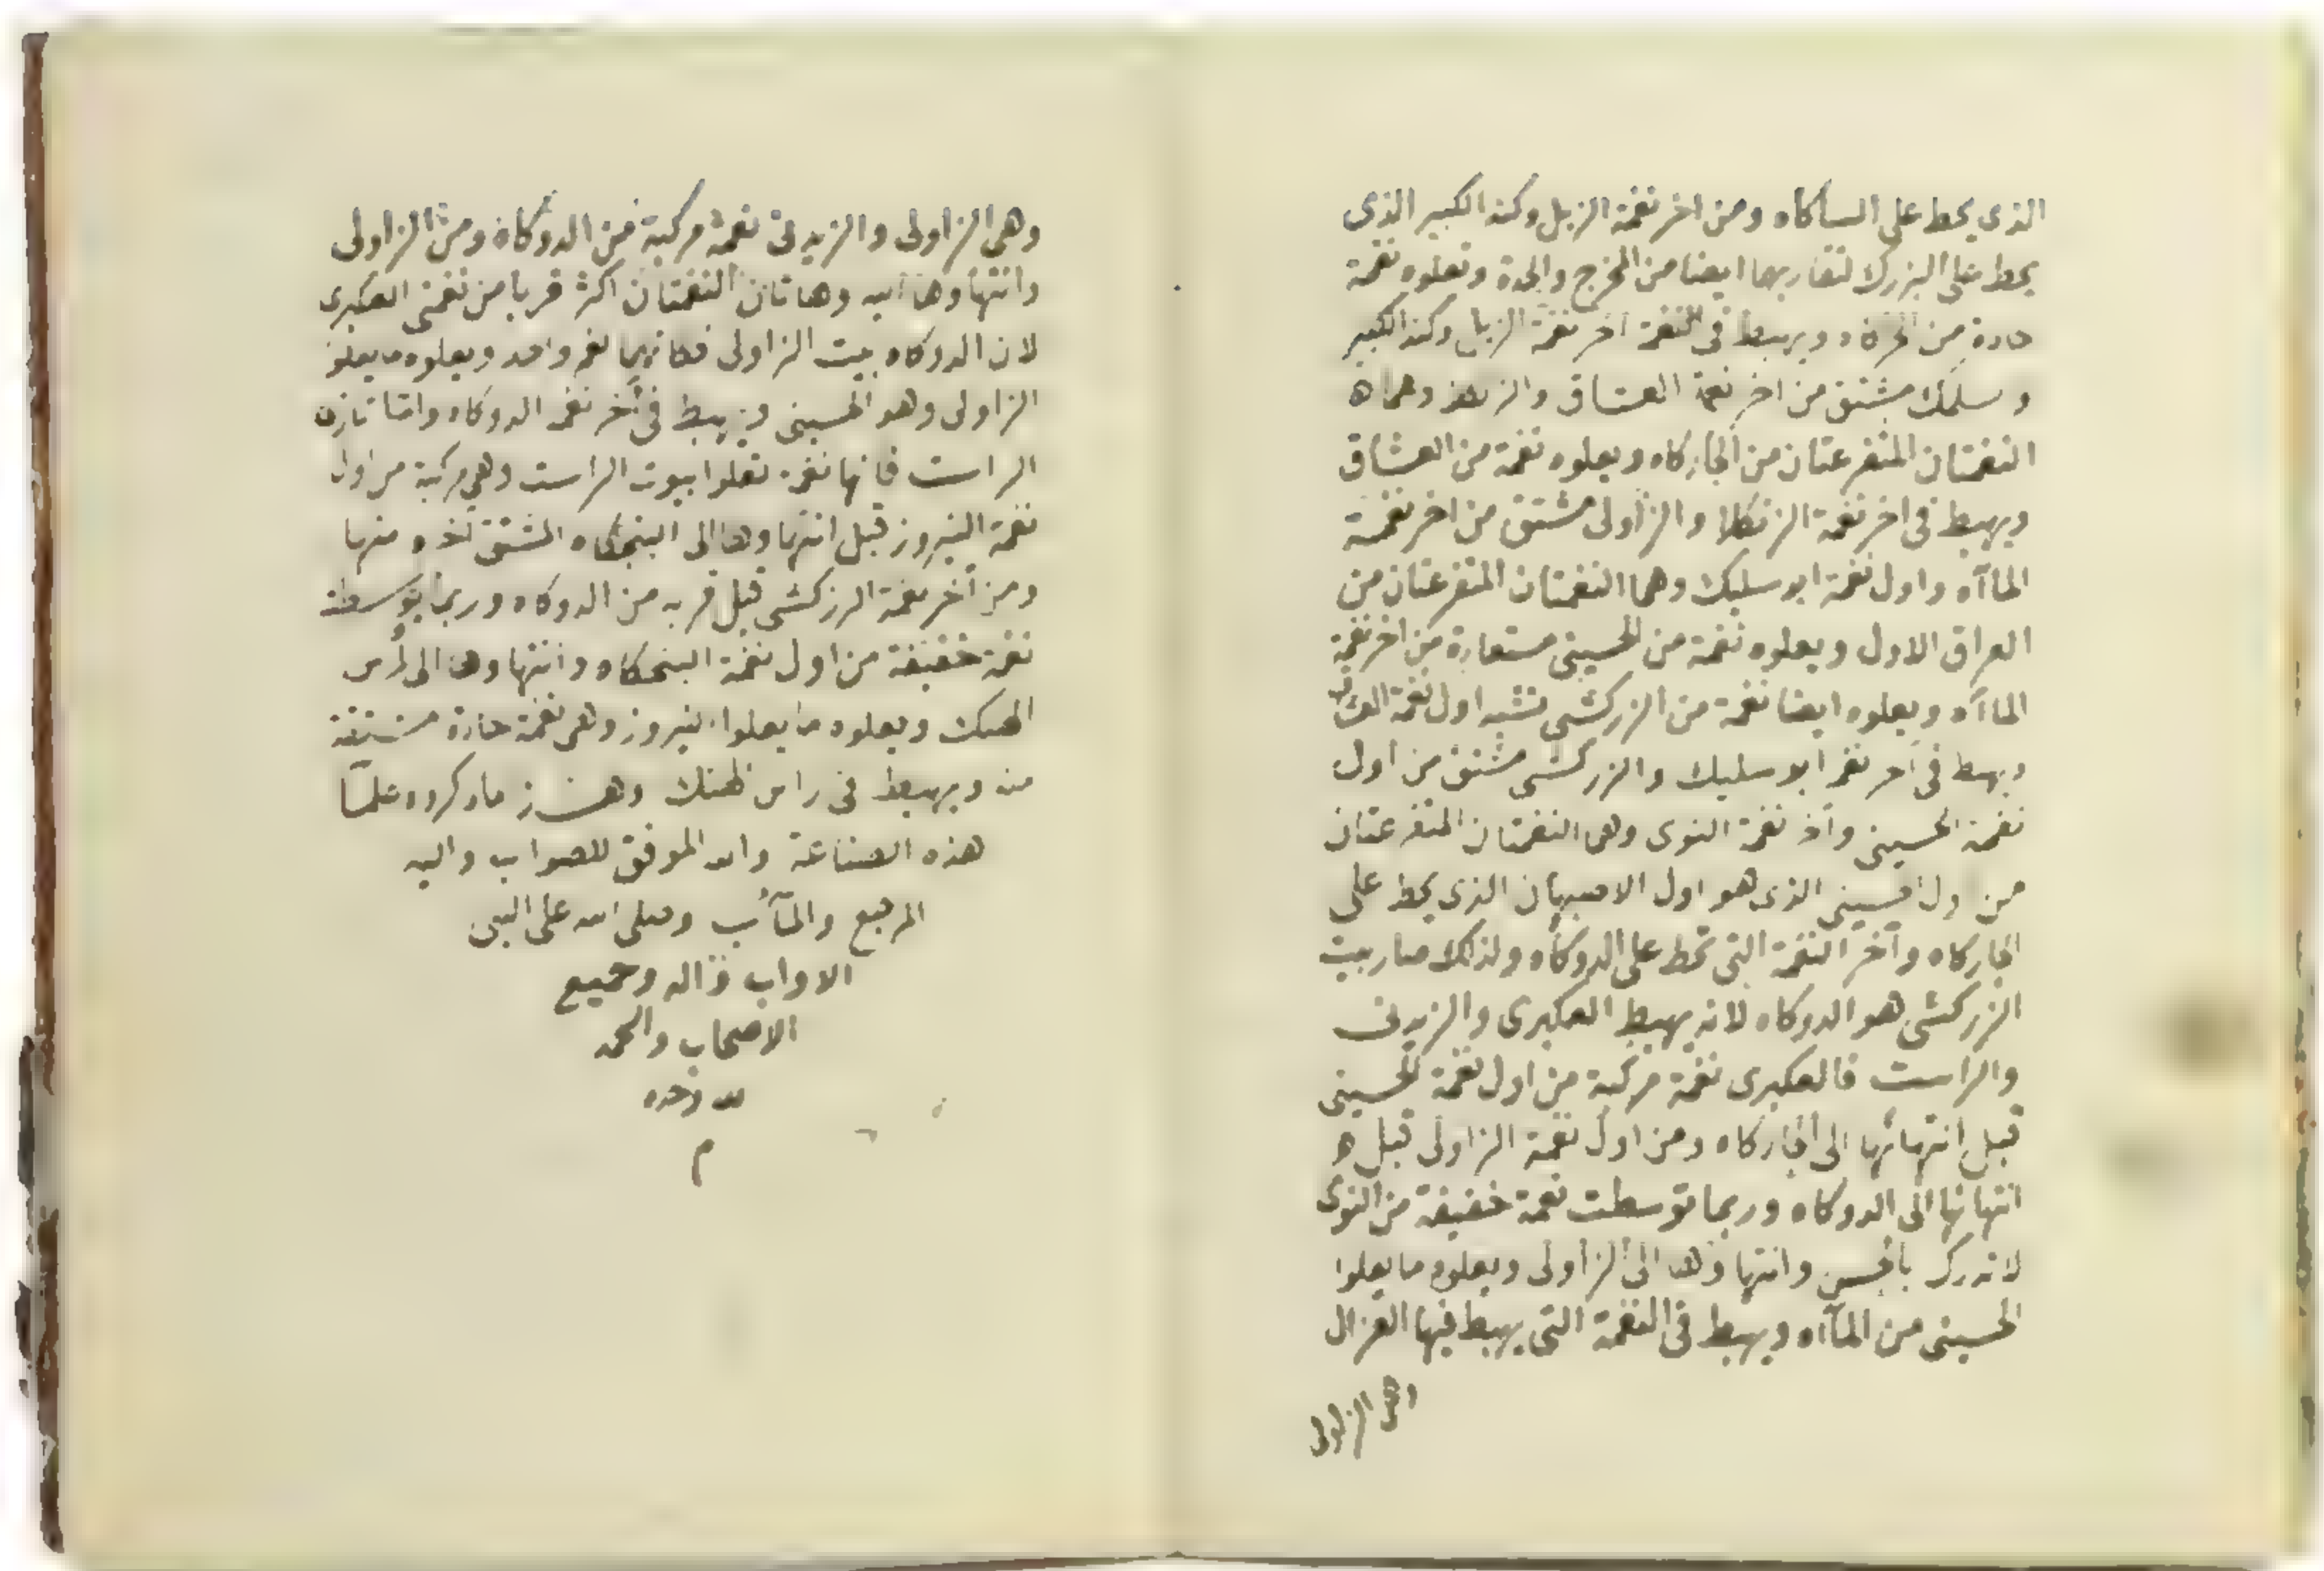 الذى يحط على الساكاه ومن اخر نغمة الزبل وكذا الكبير الذى
يحط على البزرك لتقاربهما ايضا من المخرج والحدة وتعلوه نغمة
حادة من ويهبط فى النغمة اخر نغمة وكذا الكبير
و سلمك مشتق من اخر نغمة العشاق و وهما
النغمتان المتفرعتان من الجاركاه ويعلوه نغمة من العشاق
ويهبط فى اخر نغمة الزنكلا والزاولى مشتق من اخر نغمة
الماآه واول نغمة ابو سليك وهما النغمتان المتفرعتان من
العراق الاول ويعلوه نغمة من الحسينى مستعارة من اخر نغمة
الماآه ويعلوه ايضا نغمة من الزركشى تشبه اول نغمة
ويهبط فى آخر نغم ابو سليك والزركشى مشتق من اول
نغمة الحسينى وآخر نغمة النوى وهى النغمتان المتفرعتان
من الذى هو اول الاصبهان الذى يحط على
الجاركاه وآخر النغمة التى تحط على الدوكاه ولذلك صار بيت
الزركشى هو الدوكاه لانه يهبط العكبرى والزيدنى
والراست فالعكبرى نغمة مركبة من اول نغمة الحسينى
قبل انتهائها الى الجاركاه ومن اول نغمة الزاولى قبل
انتهائها الى الدوكاه وربما توسطت نغمة خفيفة من النوى
وانتهاوها الى الزاولى ويعلوه ما يعلوا
الحسينى من الماآه ويهبط فى النغمة التى يهبط فيها الغزال
وهى الزاولى
وهى الزاولى والزيدنى نغمة مركبة من الدوكاه ومن الزاولى
وانتهاوها اليه وهاتان النغمتان اكثر قربا من نغمتى العكبرى
لان الدوكاه بيت الزاولى فكانهما نغم واحد ويعلوه ما يعلو
الزاولى وهو الحسينى ويهبط فى آخر نغم الدوكاه واما
الراست فانها نغمة تعلوا بيوت الراست وهى مركبة من اول
نغمة النيروز قبل انتهاوها الى البنجكاه المشتق اخره منها
ومن آخر نغمة الزركشى قبل قربه من الدوكاه وربما توسطته
نغمة خفيفة من اول نغمة البنجكاه وانتهاوها الى راس
الهنك ويعلوه ما يعلوا نيروز وهى نغمة حادة مشتقة
منه ويهبط فى راس الهنك وهذا ما ذكروه علما
هذه الصناعة والله الموفق للصواب واليه
المرجع والمآب وصلى الله على النبى
الاواب وآله وجميع
الاصحاب والحمد
لله وحده
م